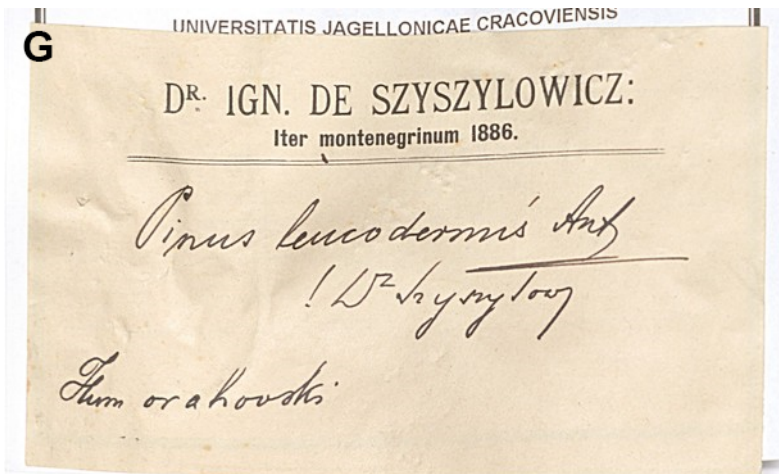 UNIVERSITATIS JAGELLONICAE CRACOVIENSIS
G
DR. IGN. DE SZYSZYLOWICZ:
Iter montenegrinum 1886.
Pinus leucodermis Ant
! Dr Szyszyłow
Hum orahovski